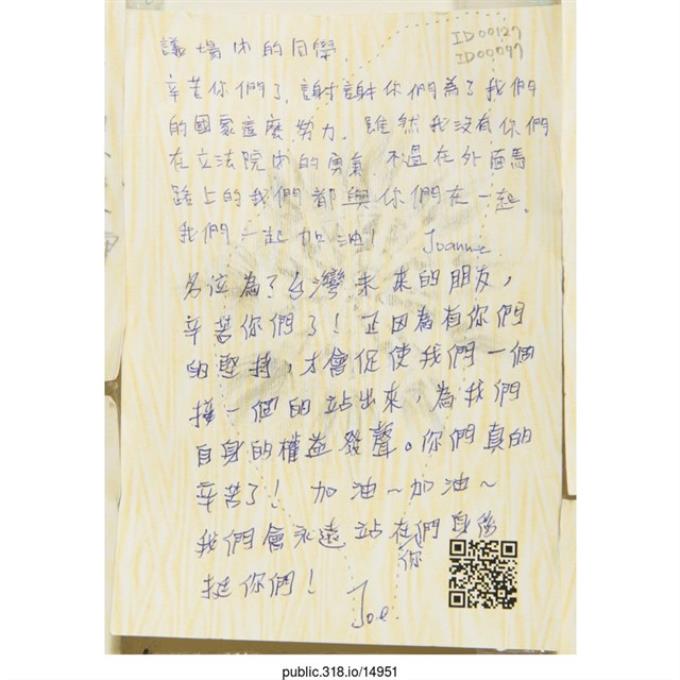 議場內的同學
ID00127
ID00097
辛苦你們了,謝謝你們為了我們
的國家這麼努力.雖然我沒有你們
在立法院內的勇氣.不過在外面馬
路上的我們都與你們在一起.
我們一起加油!
Joanne
各位為了台灣未來的朋友,
辛苦你們了!正因為有你們
的堅持,才會促使我們一個
接一個的站出來,為我們
自身的權益發聲。你們真的
辛苦了! 加油~加油~
我們會永遠站在你們身後
挺你們!
Joe.
public.318.io/14951